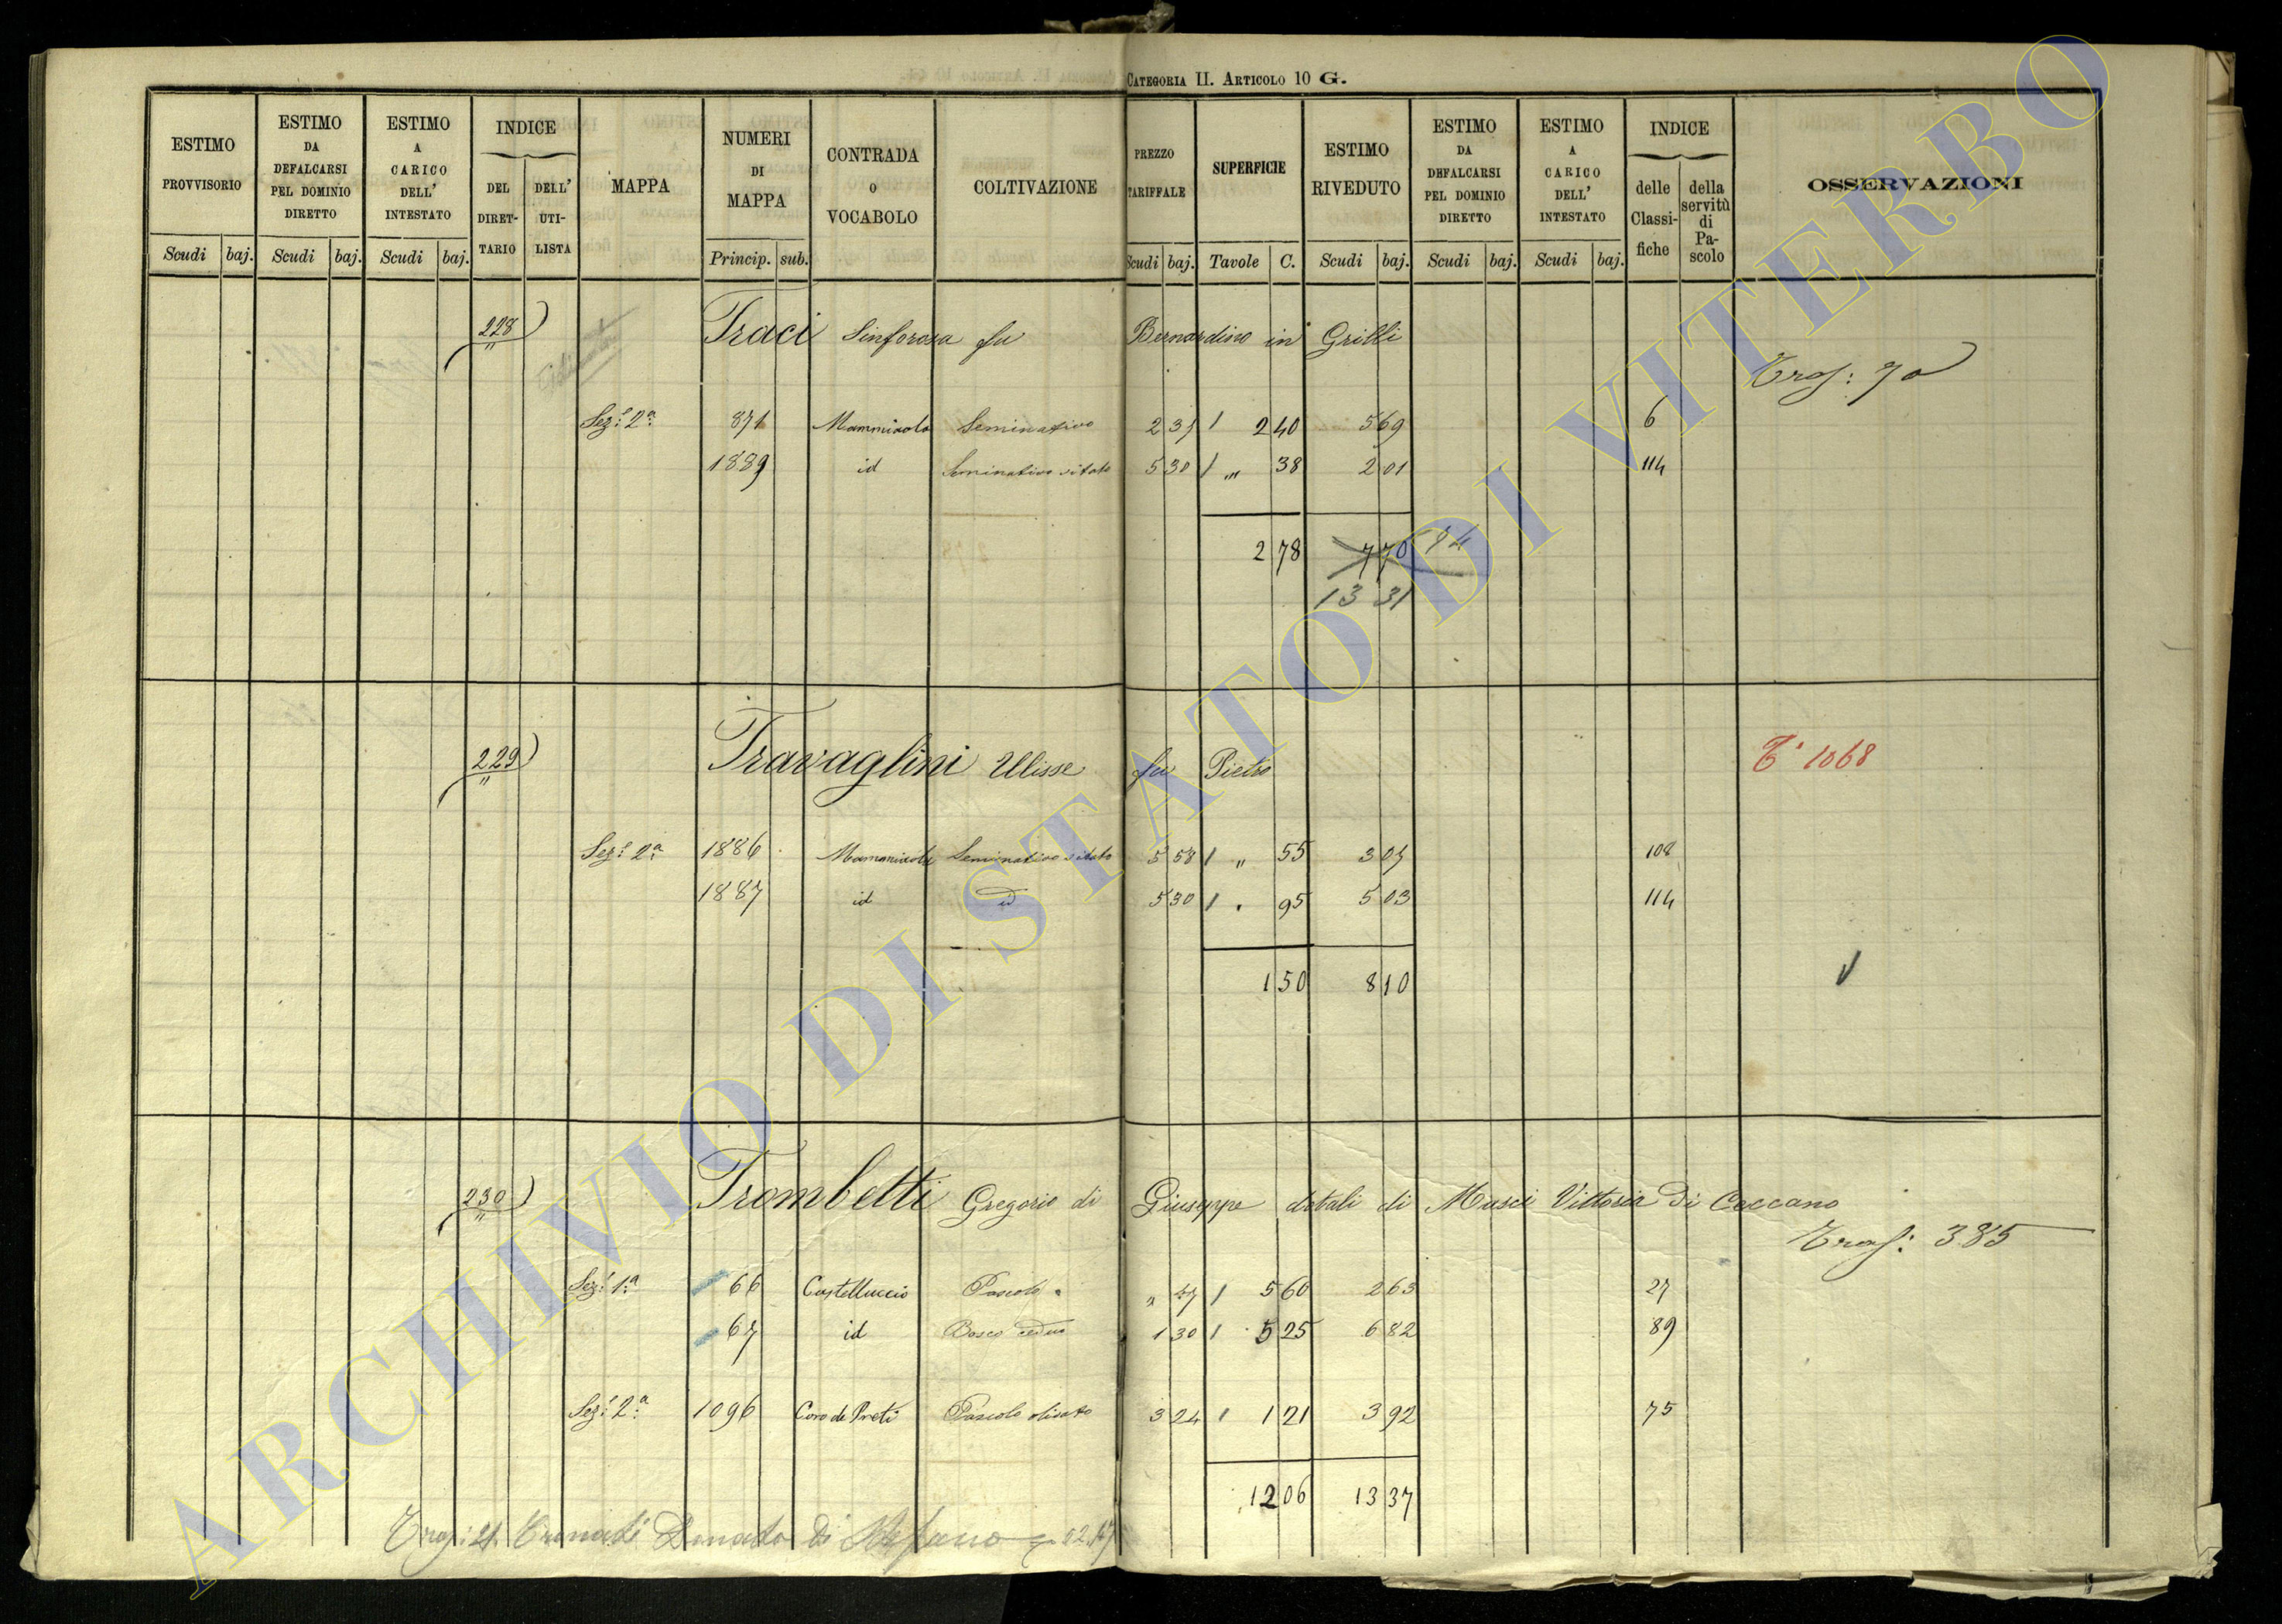 CATEGORIA II. ARTICOLO 10 G.
ESTIMO PROVVISORIO
ESTIMO DA DEFALCARSI PEL DOMINIO DIRETTO
ESTIMO A CARICO DELL' INTESTATO
INDICE
DEL DIRET-TARIO
DELL' UTI-LISTA
MAPPA
NUMERI DI MAPPA
CONTRADA O VOCABOLO
COLTIVAZIONE
PREZZO TARIFFALE
SUPERFICIE
ESTIMO RIVEDUTO
ESTIMO DA DEFALCARSI PEL DOMINIO DIRETTO
ESTIMO A CARICO DELL' INTESTATO
INDICE
delle Classi-fiche
della servitù di Pa-scolo
OSSERVAZIONI
Scudi baj. Scudi baj. Scudi baj. Princip. sub. Scudi baj. Tavole C. Scudi baj. Scudi baj. Scudi baj.
228 Traci Sinforosa fu Bernardino in Grilli
Tras: 70
Sez: 2a 871 Mammicola Seminativo 2 37 / 2 40 5 69 6
1889 id Seminativo vitato 5 30 / " 38 2 01 114
2 78 7 70
13 31
229 Travaglini Ulisse fu Pietro
T: 1068
Sez: 2a 1886 Mammicola Seminativo vitato 5 58 / " 55 3 07 108
1887 id id 5 30 / " 95 5 03 114
1 50 8 10
230 Trombetti Gregorio di Giuseppe dotali di Masci Vittoria di Ceccano
Tras: 385
Sez: 1a 66 Castelluccio Pascolo " 47 / 5 60 2 63 27
67 id Bosco ceduo 1 30 / 5 25 6 82 89
Sez: 2a 1096 Coro de Preti Pascolo olivato 3 24 / 1 21 3 92 75
12 06 13 37
Donato di Stefano
ARCHIVIO DI STATO DI VITERBO